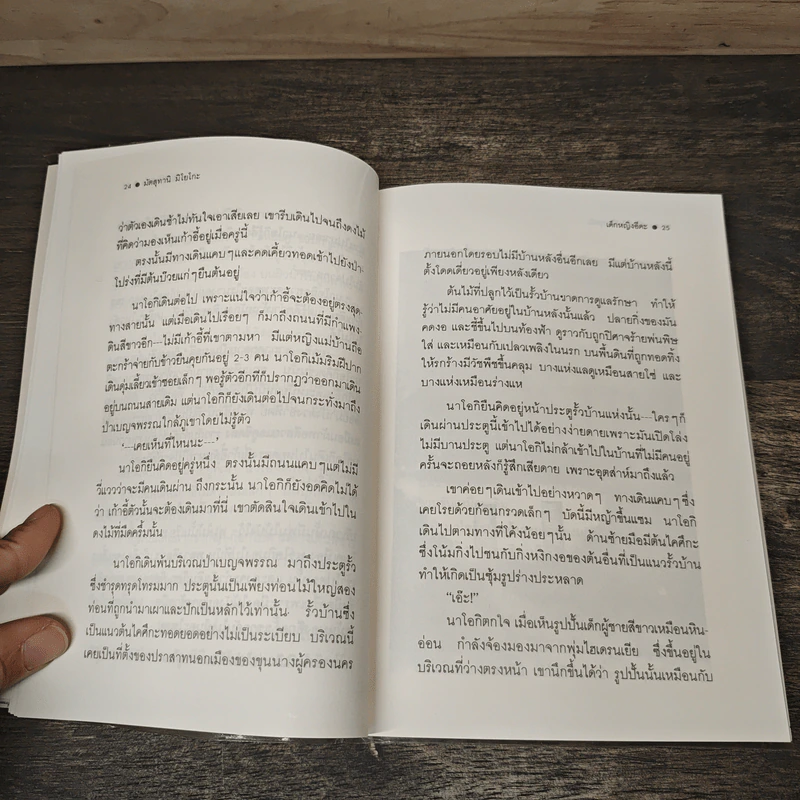 24 ● มัตสุทานิ มิโยโกะ
ว่าตัวเองเดินช้าไม่ทันใจเอาเสียเลย เขารีบเดินไปจนถึงดงไม้
ที่คิดว่ามองเห็นเก้าอี้อยู่เมื่อครู่นี้
ตรงนั้นมีทางเดินแคบๆและคดเคี้ยวทอดเข้าไปยังป่า-
โปร่งที่มีต้นบ๊วยแก่ๆยืนต้นอยู่
นาโอกิเดินต่อไป เพราะแน่ใจว่าเก้าอี้จะต้องอยู่ตรงสุด-
ทางสายนั้น แต่เมื่อเดินไปเรื่อยๆ ก็มาถึงถนนที่มีกำแพง-
ดินสีขาวอีก---ไม่มีเก้าอี้ที่เขาตามหา มีแต่หญิงแม่บ้านถือ
ตะกร้าจ่ายกับข้าวยืนคุยกันอยู่ 2-3 คน นาโอกิเม้มริมฝีปาก
เดินดุ่มเลี้ยวเข้าซอยเล็กๆ พอรู้ตัวอีกทีก็ปรากฏว่าออกมาเดิน
อยู่บนถนนสายเดิม แต่นาโอกิก็ยังเดินต่อไปจนกระทั่งมาถึง
ป่าเบญจพรรณใกล้ภูเขาโดยไม่รู้ตัว
'---เคยเห็นที่ไหนนะ---'
นาโอกิยืนคิดอยู่ครู่หนึ่ง ตรงนั้นมีถนนแคบๆแต่ไม่มี
วี่แววว่าจะมีคนเดินผ่าน ถึงกระนั้น นาโอกิก็ยังอดคิดไม่ได้
ว่า เก้าอี้ตัวนั้นจะต้องเดินมาที่นี่ เขาตัดสินใจเดินเข้าไปใน
ดงไม้ที่มืดครึ้มนั้น
นาโอกิเดินพ้นบริเวณป่าเบญจพรรณ มาถึงประตูรั้ว
ซึ่งชำรุดทรุดโทรมมาก ประตูนั้นเป็นเพียงท่อนไม้ใหญ่สอง
ท่อนที่ถูกนำมาเผาและปักเป็นหลักไว้เท่านั้น รั้วบ้านซึ่ง
เป็นแนวต้นไคศึกะทอดยอดอย่างไม่เป็นระเบียบ บริเวณนี้
เคยเป็นที่ตั้งของปราสาทนอกเมืองของขุนนางผู้ครองนคร
เด็กหญิงอีดะ ● 25
ภายนอกโดยรอบไม่มีบ้านหลังอื่นอีกเลย มีแต่บ้านหลังนี้
ตั้งโดดเดี่ยวอยู่เพียงหลังเดียว
ต้นไม้ที่ปลูกไว้เป็นรั้วบ้านขาดการดูแลรักษา ทำให้
รู้ว่าไม่มีคนอาศัยอยู่ในบ้านหลังนั้นแล้ว ปลายกิ่งของมัน
คดงอ และชี้ขึ้นไปบนท้องฟ้า ดูราวกับถูกปีศาจร้ายพ่นพิษ
ใส่ และเหมือนกับเปลวเพลิงในนรก บนพื้นดินที่ถูกทอดทิ้ง
ให้รกร้างมีวัชพืชขึ้นคลุม บางแห่งแลดูเหมือนสายโซ่ และ
บางแห่งเหมือนร่างแห
นาโอกิยืนคิดอยู่หน้าประตูรั้วบ้านแห่งนั้น---ใครๆก็
เดินผ่านประตูนี้เข้าไปได้อย่างง่ายดายเพราะมันเปิดโล่ง
ไม่มีบานประตู แต่นาโอกิไม่กล้าเข้าไปในบ้านที่ไม่มีคนอยู่
ครั้นจะถอยหลังก็รู้สึกเสียดาย เพราะอุตส่าห์มาถึงแล้ว
เขาค่อยๆเดินเข้าไปอย่างหวาดๆ ทางเดินแคบๆซึ่ง
เคยโรยด้วยก้อนกรวดเล็กๆ บัดนี้มีหญ้าขึ้นแซม นาโอกิ
เดินไปตามทางที่โค้งน้อยๆนั้น ด้านซ้ายมือมีต้นไคศึกะ
ซึ่งโน้มกิ่งไปชนกับกิ่งหงิกงอของต้นอื่นที่เป็นแนวรั้วบ้าน
ทำให้เกิดเป็นซุ้มรูปร่างประหลาด
"เอ๊ะ!"
นาโอกิตกใจ เมื่อเห็นรูปปั้นเด็กผู้ชายสีขาวเหมือนหิน-
อ่อน กำลังจ้องมองมาจากพุ่มไฮเดรนเยีย ซึ่งขึ้นอยู่ใน
บริเวณที่ว่างตรงหน้า เขานึกขึ้นได้ว่า รูปปั้นนั้นเหมือนกับ